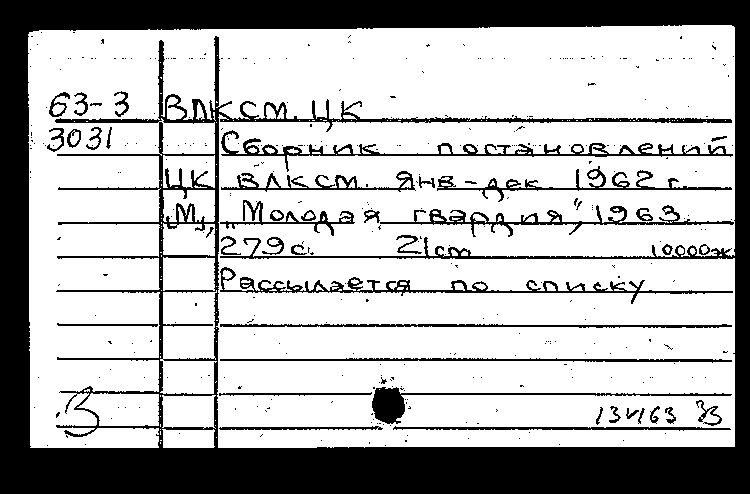 63-3 ВЛКСМ. ЦК
3031 Сборник постановлений
ЦК ВЛКСМ. Янв-дек. 1962 г.
„М“, „Молодая гвардия“, 1963.
279с. 21cm 10000эк
Рассылается по списку
З